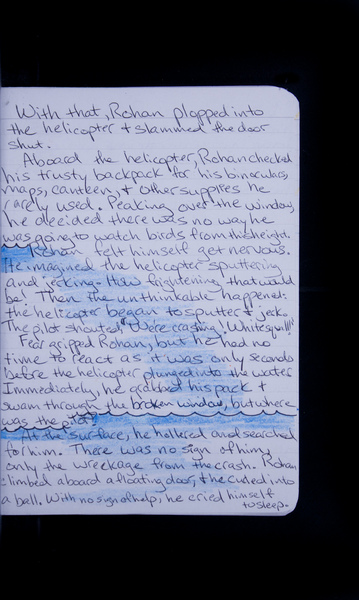 With that, Rohan plopped into
the helicopter + slammed the door
shut.
Aboard the helicopter, Rohan checked
his trusty backpack for his binoculars,
maps, canteen, + other suppires he
rarely used. Peaking over the window,
he decided there was no way he
was going to watch birds from this height.
Rohan felt himself get nervous.
He imagined the helicopter sputtering
and jerking. How frightening that would
be! Then the unthinkable happened:
the helicopter began to sputter + jerk.
The pilot shouted, "We're crashing!
Fear gripped Rohan, but he had no
time to react as it was only seconds
before the helicopter plunged into the water
Immediately, he grabbed his pack +
swam through the broken window, but where
was the pilot?
At the surface, he hollered and searched
for him. There was no sign of him,
only the wreckage from the crash. Rohan
climbed aboard a floating door, + he curled into
a ball. With no sign of help, he cried himself
to sleep.